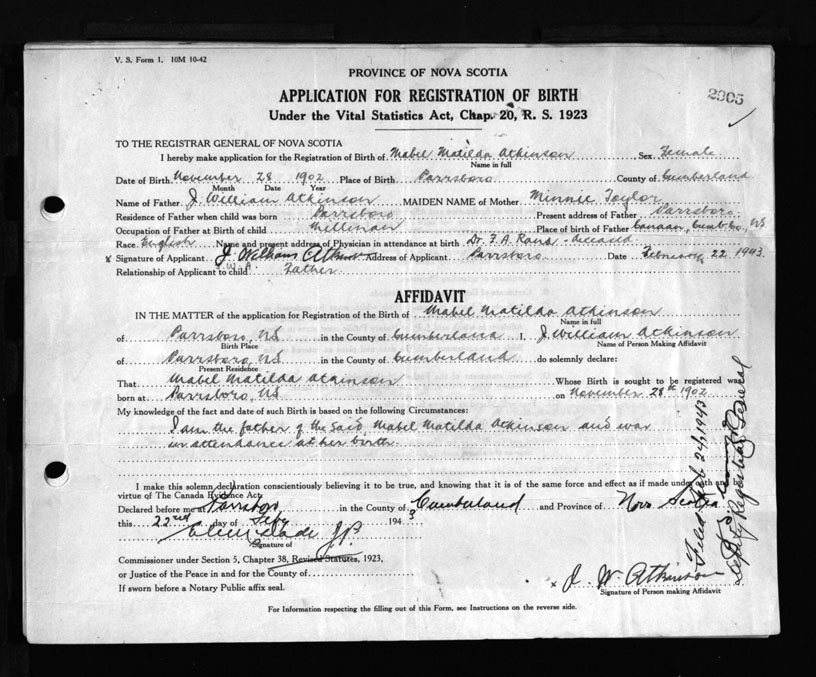 V. S. Form 1. 10M 10-42
PROVINCE OF NOVA SCOTIA
2905
APPLICATION FOR REGISTRATION OF BIRTH
Under the Vital Statistics Act, Chap. 20, R. S. 1923
TO THE REGISTRAR GENERAL OF NOVA SCOTIA
I hereby make application for the Registration of Birth of Mabel Matilda Atkinson, Sex Female
Name in full
Date of Birth November 28 1902 Place of Birth Parrsboro County of Cumberland
Month Date Year
Name of Father J. William Atkinson MAIDEN NAME of Mother Minnie Taylor
Residence of Father when child was born Parrsboro Present address of Father Parrsboro
Occupation of Father at Birth of child Millman Place of birth of Father Canaan, Cumb. Co., NS
Race English Name and present address of Physician in attendance at birth Dr. F. A. Rand - deceased
x Signature of Applicant J. William Atkinson Address of Applicant Parrsboro Date February 22 1943.
J. W. A.
Relationship of Applicant to child Father
AFFIDAVIT
IN THE MATTER of the application for Registration of the Birth of Mabel Matilda Atkinson
Name in full
of Parrsboro, NS in the County of Cumberland I, J. William Atkinson
Birth Place Name of Person Making Affidavit
of Parrsboro, NS in the County of Cumberland do solemnly declare:
Present Residence
That Mabel Matilda Atkinson Whose Birth is sought to be registered was
born at Parrsboro, NS on November 28th 1902
My knowledge of the fact and date of such Birth is based on the following Circumstances:
I am the father of the said, Mabel Matilda Atkinson and was
in attendance at her birth.
I make this solemn declaration conscientiously believing it to be true, and knowing that it is of the same force and effect as if made under oath and
virtue of The Canada Evidence Act.
Declared before me at Parrsboro in the County of Cumberland and Province of Nova Scotia
this 22nd day of Feby 1943
J.P.
Signature of
Commissioner under Section 5, Chapter 38, Revised Statutes, 1923,
or Justice of the Peace in and for the County of
If sworn before a Notary Public affix seal.
x J. W. Atkinson
Signature of Person making Affidavit
For Information respecting the filling out of this Form, see Instructions on the reverse side.
Filed Feb 24, 1943
Deputy Registrar General